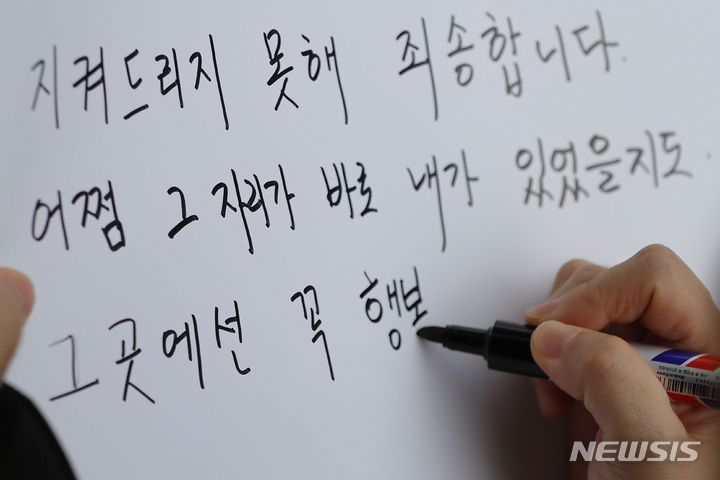 지켜드리지 못해 죄송합니다.
어쩜 그 자리가 바로 내가 있었을지도
그곳에선 꼭 행보
NEWSIS
www.newsis.com